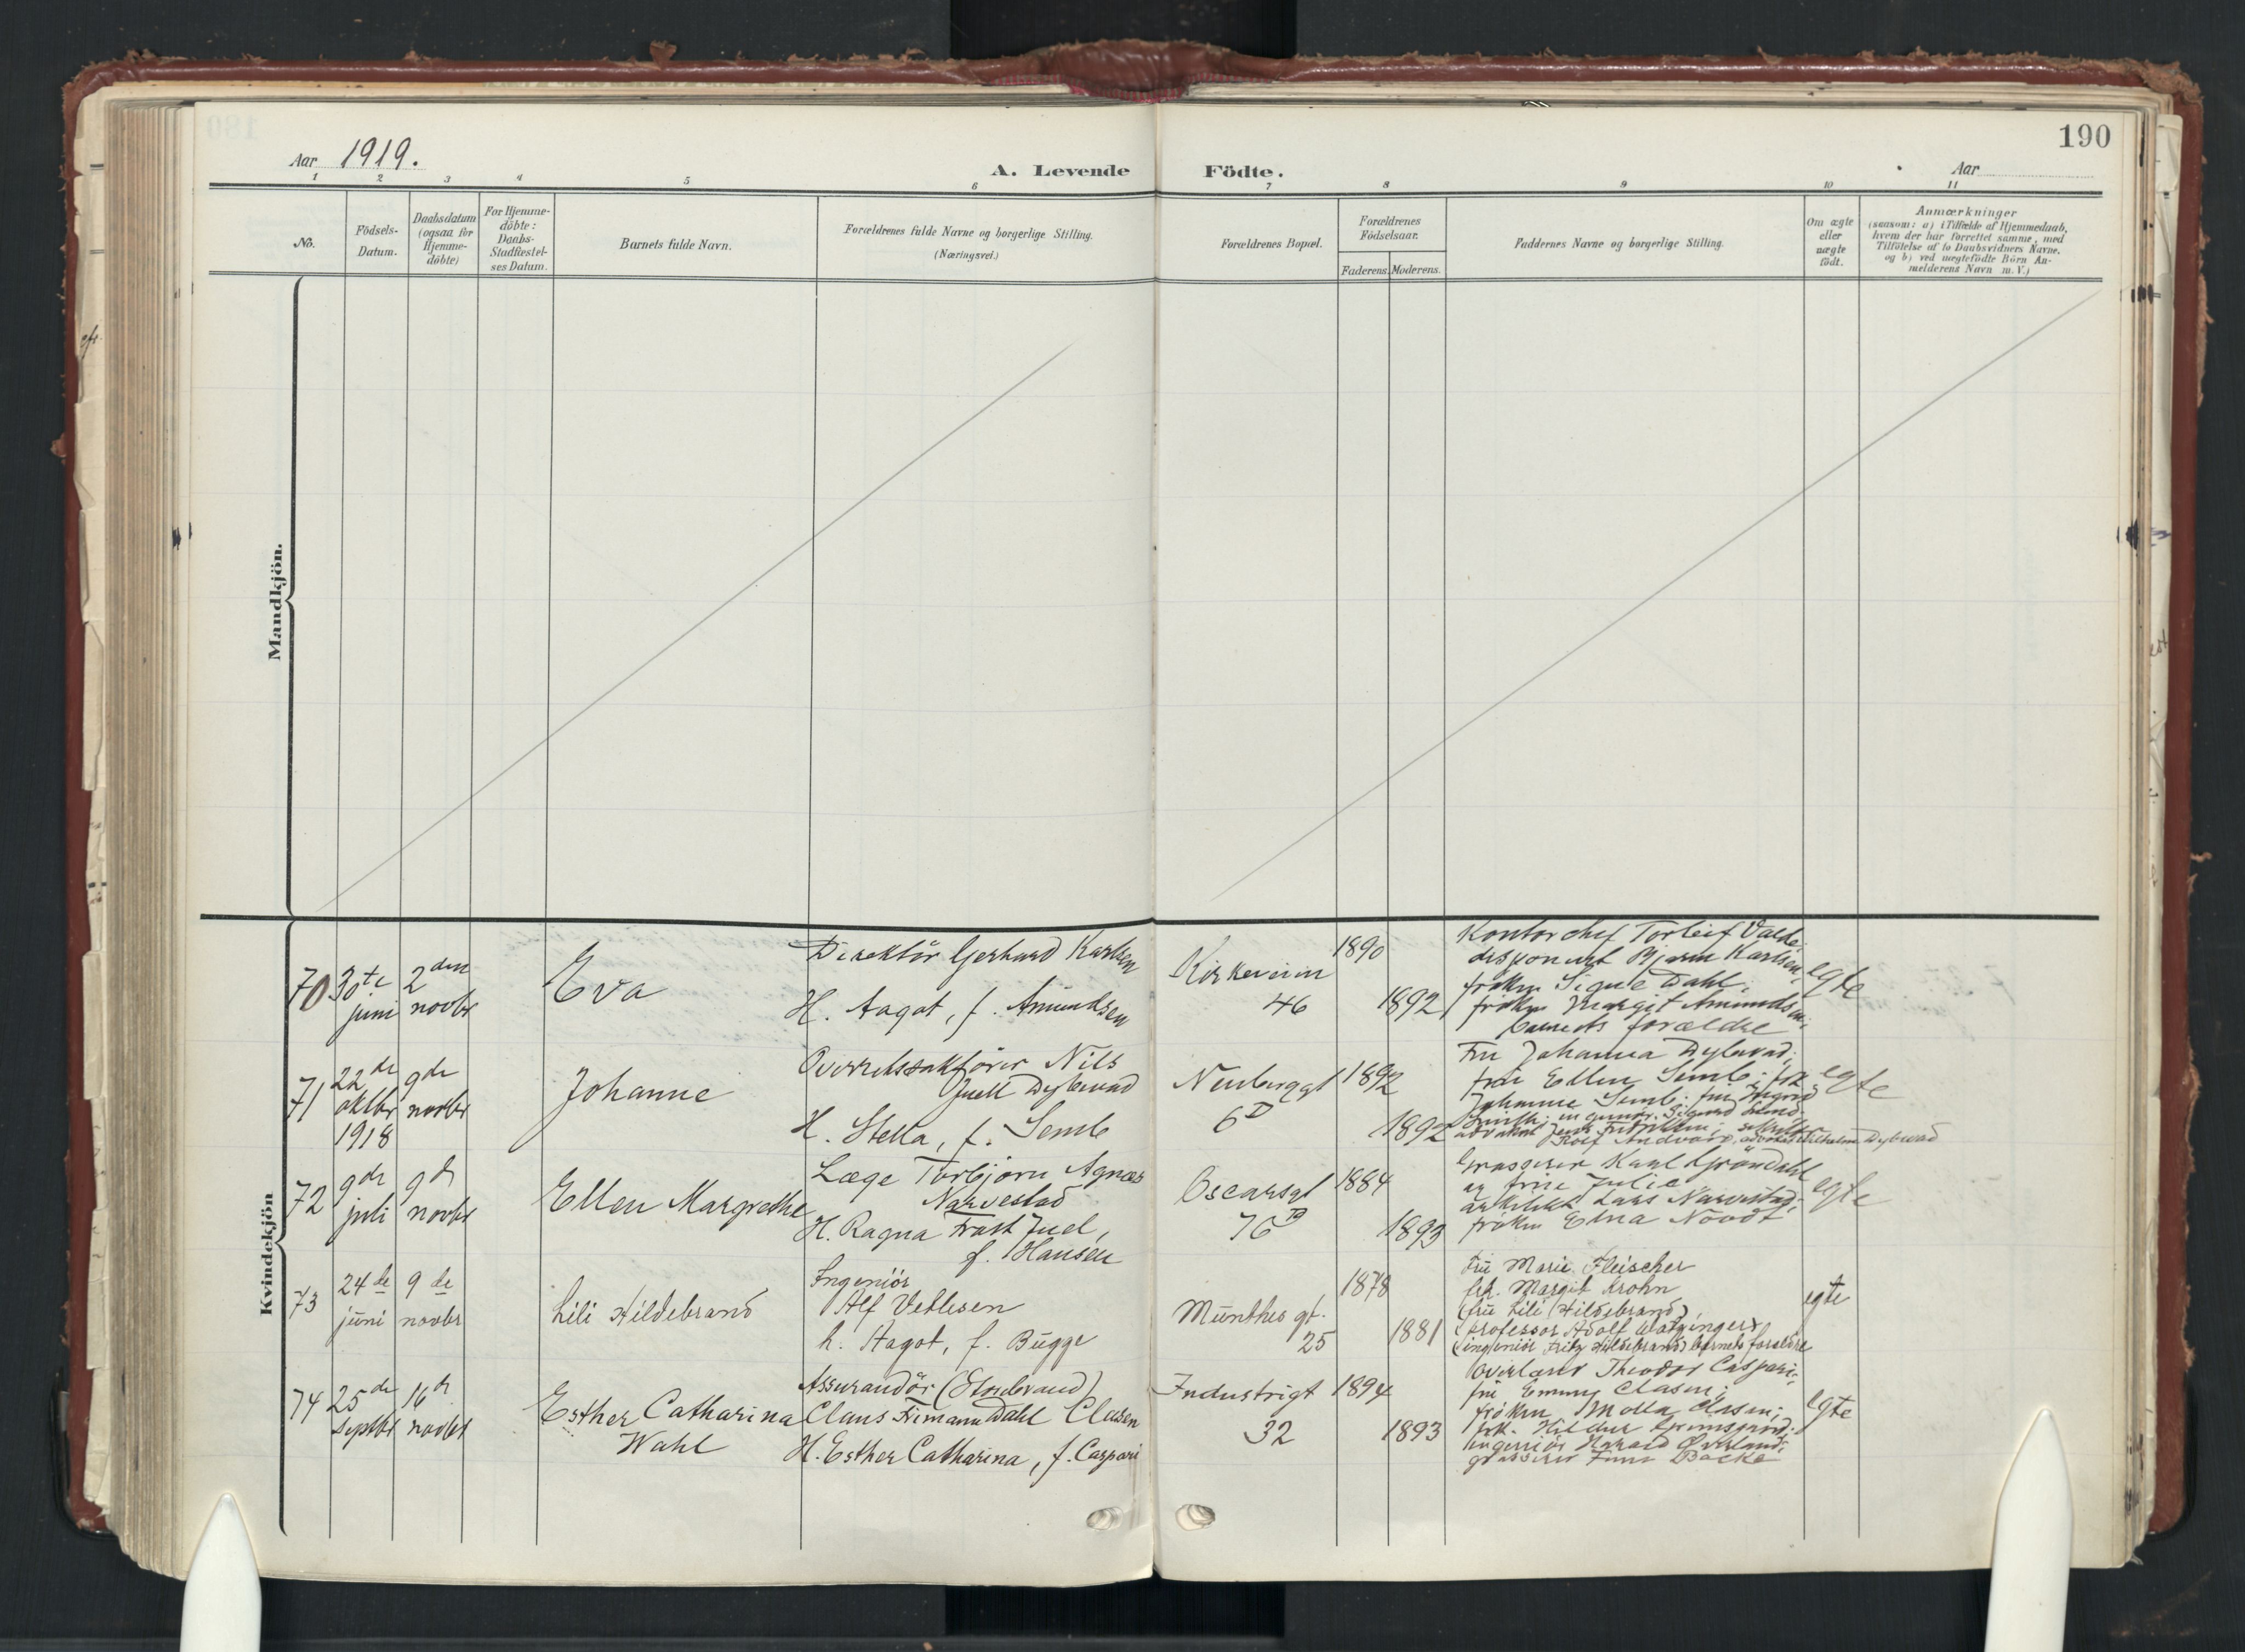 190
Aar 1919.
A. Levende Födte.
Aar
1 2 3 4 5 6 7 8 9 10 11
No.
Födsels-
Datum.
Daabsdatum
(ogsaa for
Hjemme-
döbte)
For Hjemme-
döbte:
Daabs-
Stadfæstel-
ses Datum.
Barnets fulde Navn.
Forældrenes fulde Navne og borgerlige Stilling.
(Næringsvei.)
Forældrenes Bopæl.
Forældrenes
Födselsaar.
Faderens. Moderens.
Faddernes Navne og borgerlige Stilling.
Om ægte
eller
uægte
födt.
Anmærkninger
(saasom: a) i Tilfælde af Hjemmedaab,
hvem der har forrettet samme, med
Tilföielse af to Daabsvidners Navne,
og b) ved uægtefödte Börn An-
melderens Navn m. V.)
Mandkjön.
Kvindekjön
70
30te
juni
2den
novbr
Eva
Direktör Gerhard Karlsen
H. Aagot, f. Amundsen
Kirkeveien
46
1890
1892
Kontorchef Torleif Valde;
disponent Bjarne Karlsen;
fröken Signe Dahl;
fröken Margit Amundsen;
barnets forældre
egte
71
22de
oktbr
1918
9de
novbr
Johanne
Overretssakförer Nils
Juell Dybwad
H. Stella, f. Semb
Neuberggt
6D
1892
1892
Fru Johanna Dybwad;
fru Ellen Semb; frk
Johanne Semb; fru Ingrid
Wilhelm Dybwad
egte
72
9de
juli
9de
novbr
Ellen Margrethe
Læge Torbjörn Agnæs
Narvestad
H. Ragna Trast Juel,
f. Hansen
Oscarsgt
76B
1884
1893
Grosserer Karl Gröndahl
og frue Julie
arkitekt Lars Narvestad;
fröken Edna Noodt
egte
73
24de
juni
9de
novbr
Lili Hildebrand
Ingeniör
Alf Vetlesen
h. Aagot, f. Bugge
Munthes gt.
25
1878
1881
Fru Marie Fleischer
frk. Margit Krohn
(fru Lili Hildebrand)
(professor Adolf Watzinger)
(ingeniör Fritz Hildebrand) barnets forældre
egte
74
25de
septbr
16de
novbr
Esther Catharina
Wahl
Assurandör (Storebrand)
Claus Dahl Clasen
H. Esther Catharina, f. Caspari
Industrigt
32
1894
1893
Overlærer Theodor Caspari;
fru Emmy Clasen;
fröken Molla Clasen;
frk. Hildur
ingeniör Harald Överland;
grosserer Finn Backe
egte